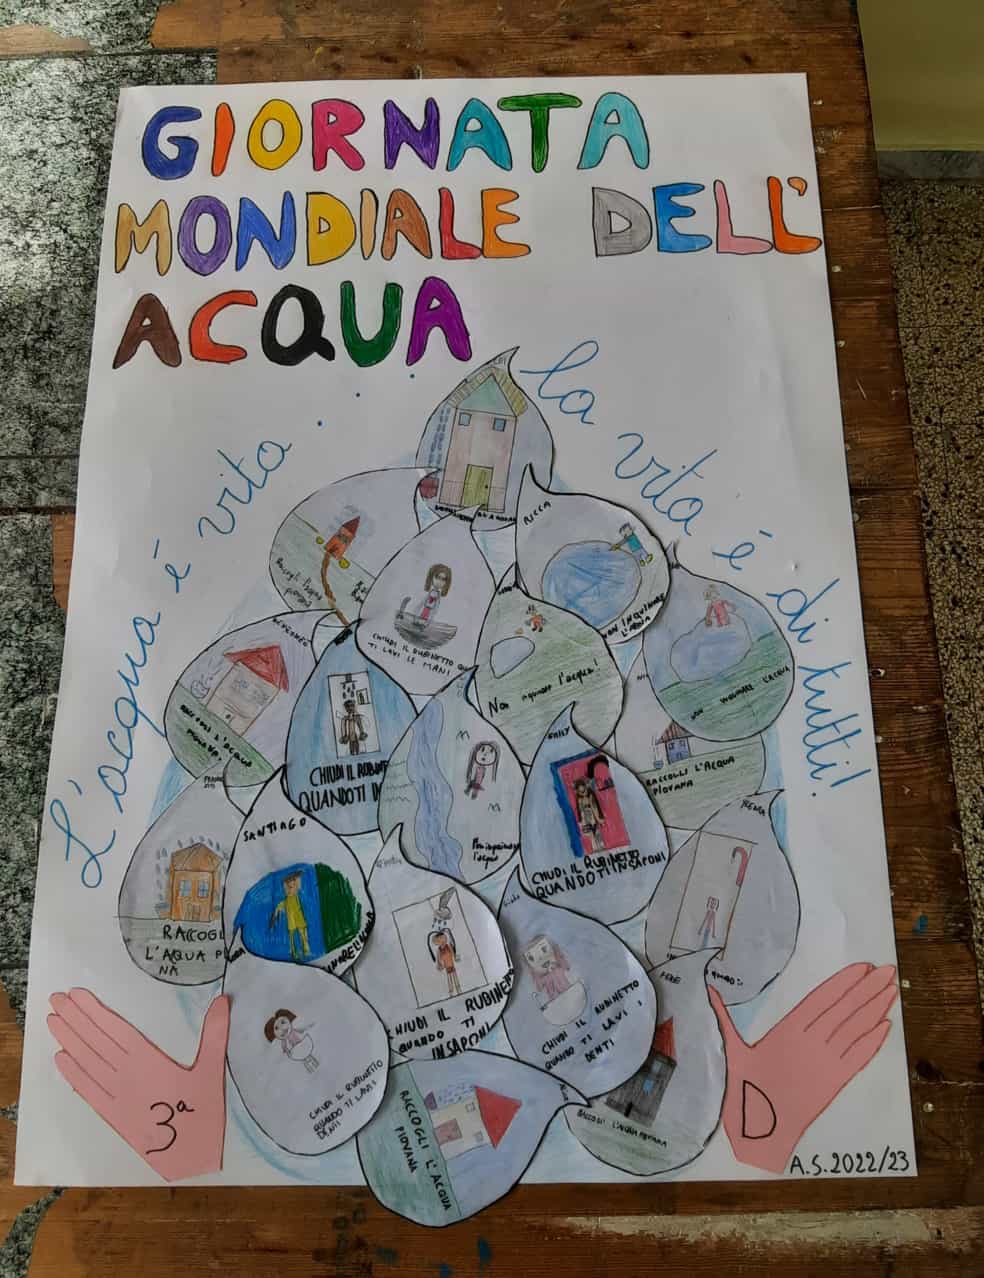 GIORNATA
MONDIALE DELL'
ACQUA
L'acqua è vita . . . la vita è di tutti!
RICCA
NON INQUINARE
L'ACQUA
Raccogli l'acqua
piovana
CHIUDI IL RUBINETTO
TI LAVI LE MANI
Non inquinare l'acqua!
NON INQUINARE L'ACQUA
RACCOGLI L'ACQUA
PIOVANA
CHIUDI IL
QUANDO TI
l'acqua
EMILY
CHIUDI IL RUBINETTO
QUANDO TI INSAPONI
RACCOLLI L'ACQUA
PIOVANA
RACCOGL
L'AQUA
NA
SANTIAGO
CHIUDI IL RUBINET
QUANDO TI
INSAPONI
CHIUDI IL RUBINETTO
QUANDO TI LAVI I
DENTI
CHIUDI IL RUBINETTO
QUANDO TI LAVI I
DENTI
RACCOGLI L'ACQUA
PIOVANA
RACCOGLI L'ACQUA PIOVANA
3ª
D
A.S.2022/23